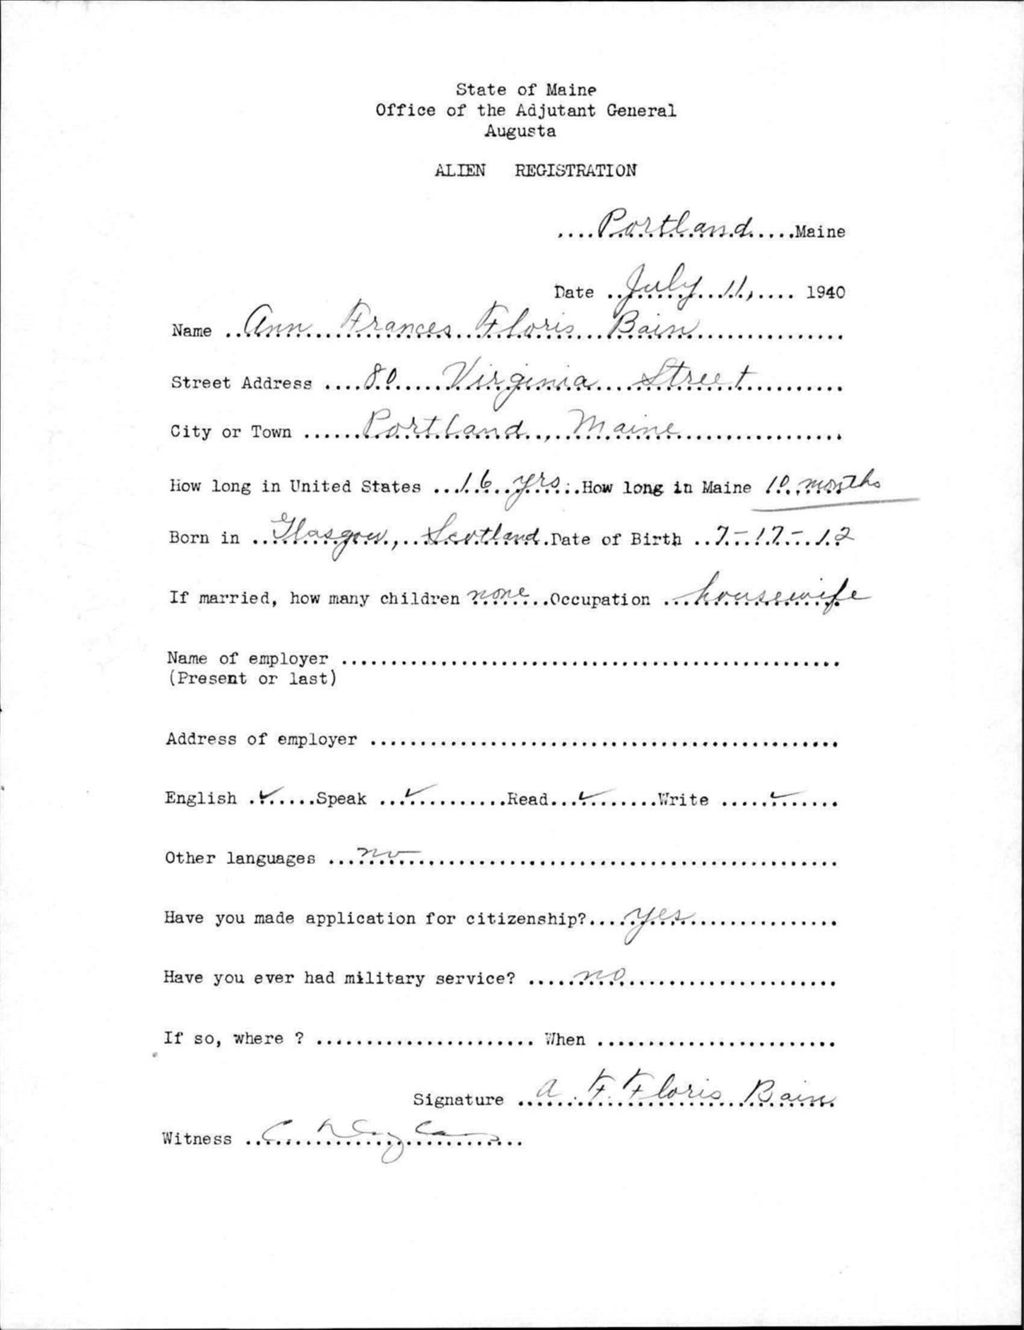 State of Maine
Office of the Adjutant General
Augusta
ALIEN REGISTRATION
....Portland.....Maine
Date ..July 11,.... 1940
Name ..Ann Frances Floris Bain..................
Street Address ....80 Virginia Street..........
City or Town ......Portland, Maine..................
How long in United States ...16 yrs..How long in Maine 10 months
Born in ..Glasgow, Scotland.Date of Birth ..7-17-12
If married, how many children none..Occupation ...housewife
Name of employer ..................................................
(Present or last)
Address of employer ..................................................
English .✓.....Speak ...✓..........Read...✓........Write .....✓......
Other languages ...no..................................................
Have you made application for citizenship?....yes................
Have you ever had military service? .....no........................
If so, where ? ........................ When ..........................
Signature ..A. F. Floris Bain
Witness ..